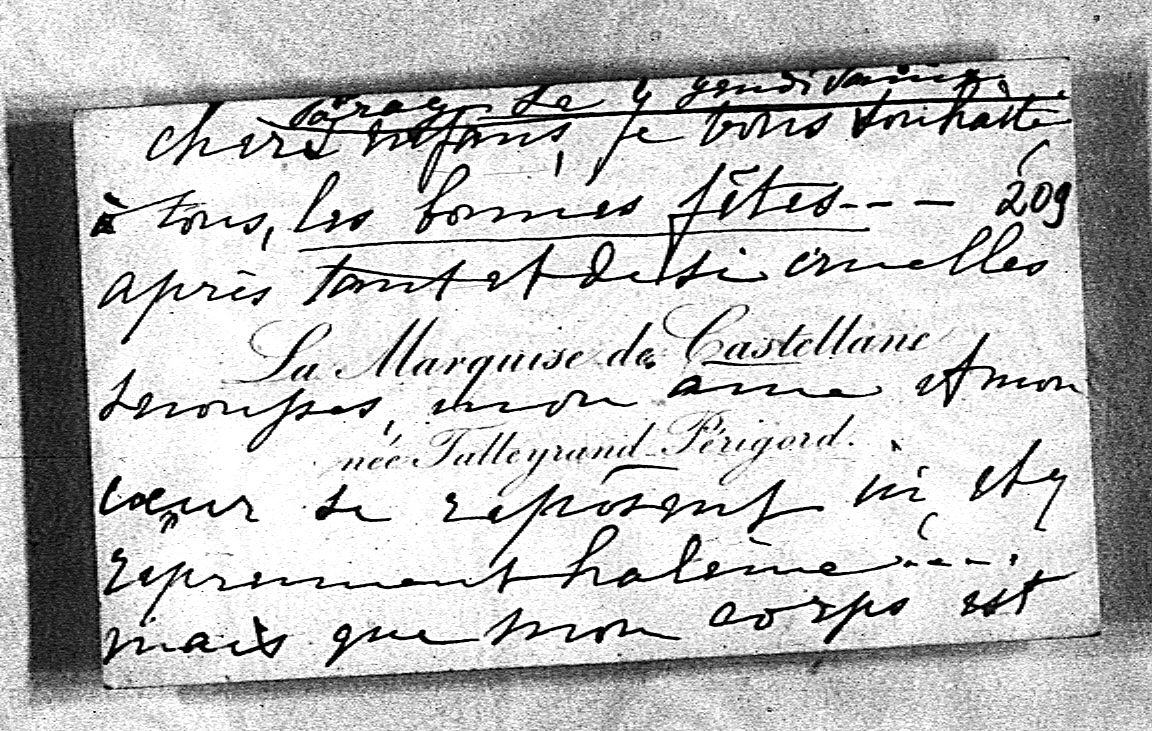 chers enfans, je vous souhaitte
à tous, les bonnes fêtes--- 209
après tant et de si cruelles
La Marquise de Castellane
secousses, mon ame et mon
née Talleyrand-Périgord.
cœur se reposent ici et y
reprennent haleine ....
mais que mon corps est